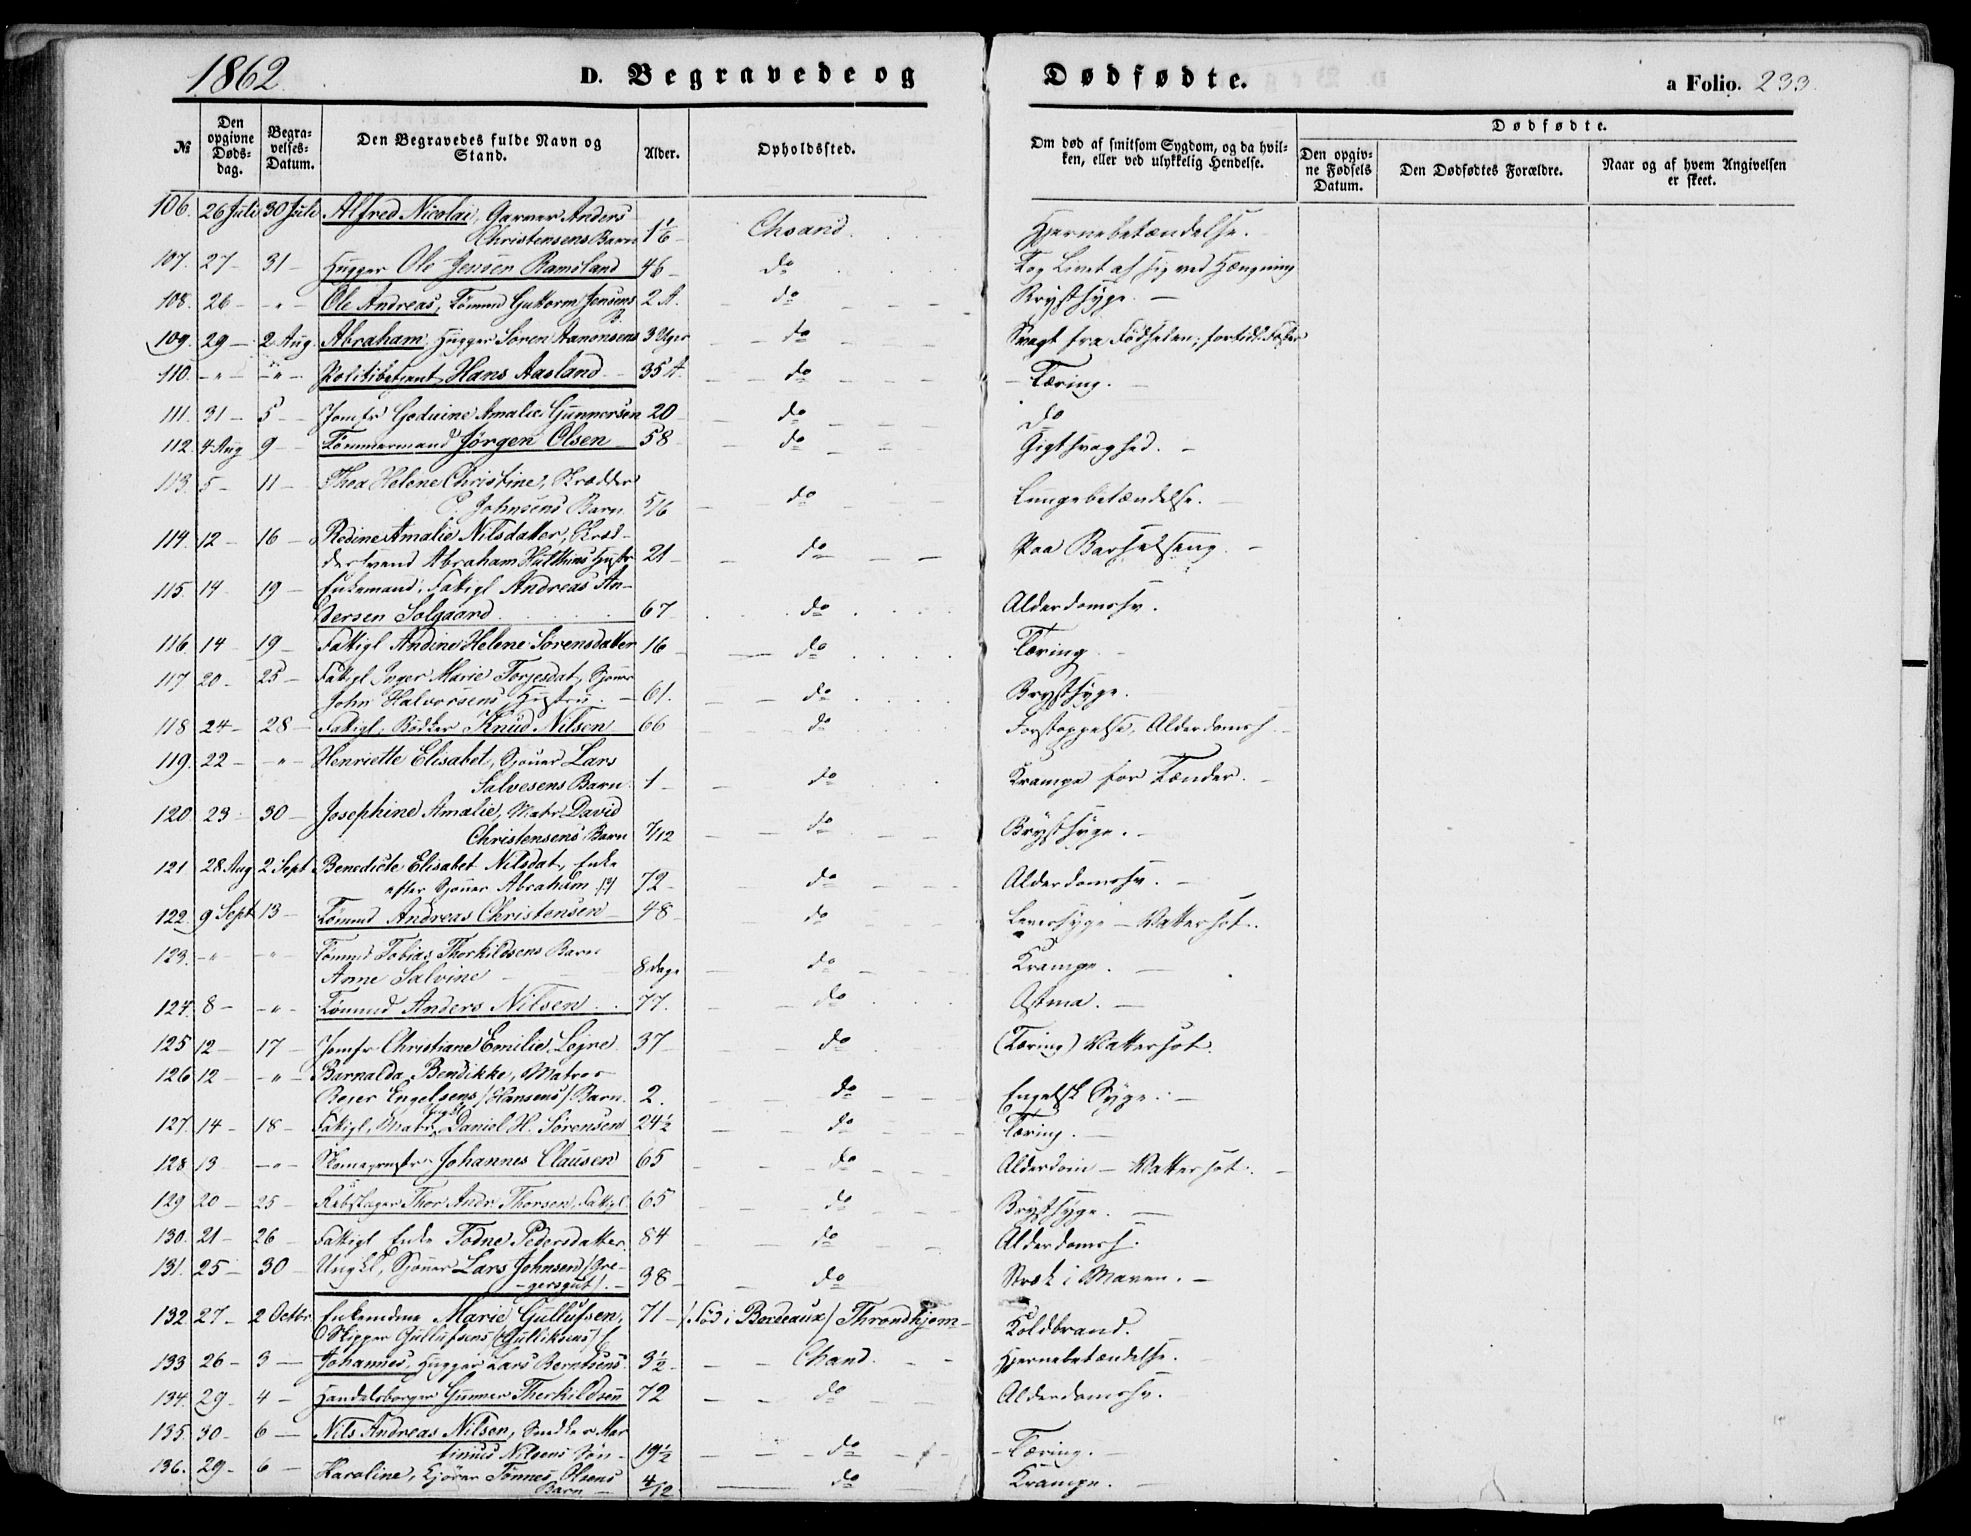 1862.
D. Begravede og Dødfødte.
a Folio. 233.
№
Den opgivne Døds-dag.
Begra-velses-Datum.
Den Begravedes fulde Navn og Stand.
Alder.
Opholdssted.
Om død af smitsom Sygdom, og da hvil-ken, eller ved ulykkelig Hendelse.
Dødfødte.
Den opgiv-ne Fødsels Datum.
Den Dødfødtes Forældre.
Naar og af hvem Angivelsen er skeet.
106. 26 Juli 30 Juli Alfred Nicolai, Garver Anders
Christensens Barn 1 1/6 – Chsand. Hjernebetændelse.
107. 27 – 31 – Hugger Ole Jensen Ramsland 46 – do Tog Livet af sig ved Hængning
108. 26 – – " – Ole Andreas, Tømmd Guttorm Jensens B. 2 A. do Brystsyge. –
109. 29 – 2 Aug. Abraham, Hugger Søren Aanonsens 3 Uger do Svagt fra Fødselen;
110. – " – – " – Politibetjent Hans Aasland 35 A. do Tæring. –
111. 31 – 5 – Jomfr Amalie Gunnersen 20 do do
112. 4 Aug 9 – Tømmermand Jørgen Olsen 58 – do Gigtsvaghed. –
113. 5 – 11 – Thea Helene Christine, Skrædder
P. Johnsens Barn 5/6 – do Lungebetændelse. –
114. 12 – 16 – Redine Amalie Nilsdatter, Skræd-
dersvend Abraham Hustr 21 – do Paa Barselseng. –
115. 14 – 19 – Enkemand, Fattigl Andreas An-
dersen Solgaard 67 – do Alderdomssv.
116. 14 – 19 – Fattigl Andine Helene Sørensdatter 16 – do Tæring –
117. 20 – 25 – Fattigl Inger Marie Torjesdat, Sjouer
John Halvorsens Hustru. – 61. do Brystsyge.
118. 24 – 28 – Fattigl, Bødker Knud Nilsen 66 do Forstoppelse, Alderdomss –
119. 22 – – " – Henriette Elisabet, Sjouer Lars
Salvesens Barn 1 – do Krampe for Tænder. –
120. 23 – 30 – Josephine Amalie, Matr David
Christensens Barn 7/12 do Brystsyge. –
121 28 Aug 2 Sept Benedicte Elisabet Nilsdat, Enke
efter Sjouer Abraham (?) 72 – do Alderdomssv. –
122. 9 Sept 13 – Tømmd Andreas Christensen 48 – do Leversyge – Vattersot.
123. – " – – " – Tømmd Tobias Thorkildsens Barn
Anne Salvine 8 Dage do Krampe. –
124. 8 – – " – Tømmd Anders Nilsen 77. do Astma. –
125 12 – 17 – Jomfr Christiane Emilie Lojne 37 – do (Tæring) Vattersot.
126 12 – – " – Barnalda Bendikke, Matros
Reier Engelsens /Hansens/ Barn. 2. do Engelsk Syge. –
127. 14 – 18 – Fattigl, Matr, Ungkl Daniel H. Sørensen 24 1/2 do Tæring. –
128. 13 – – " – Johannes Clausen 65 do Alderdom – Vattersot. –
129 20 – 25 – Rebslager Thor Andr. Thorsen, Fattigl 65 do Brystsyge. –
130. 21 – 26 – Fattigl Enke Todne Pedersdatter 84 do Alderdomss.
131. 25 – 30 – Ungkl, Sjouer Lars Johnsen /Gre-
gersgut/. – 38 – do Stræk i Maven. –
132. 27 – 2 Octbr. Enkemdme Marie Gullufsen, 71 – /Død i Bordeaux/ Throndhjem – Koldbrand.
Skipper Gullufsens /Gulliksens/
133 26 – 3 – Johannes, Hugger Lars Berntsens 3 1/2 – Chand. Hjernebetændelse.
134. 29 – 4 – Handelsborger Gunner Therkildsen 72 do Alderdomssv.
135. 30 – 6 – Nils Andreas Nilsen, Snedker Mar-
tinius Nilsens Søn – 19 1/2 do Tæring. –
136. 29 – 6 – Karoline, Kjører Tønnes Olsens
Barn – 4/12 do Krampe. –